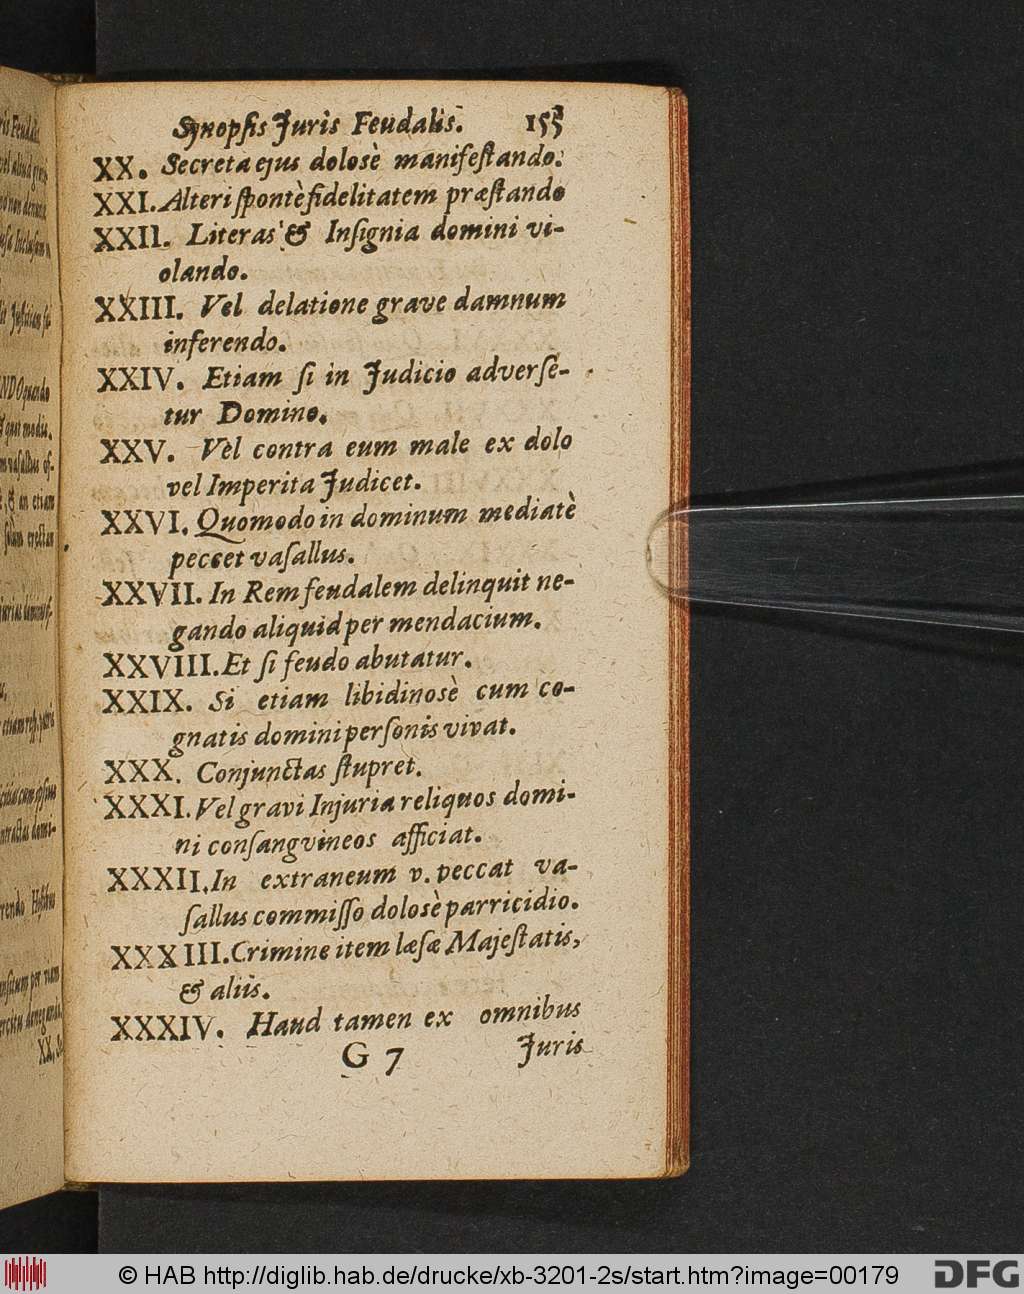 Synopsis Juris Feudalis. 155
XX. Secreta ejus dolosè manifestando.
XXI. Alteri spontè fidelitatem præstando
XXII. Literas & Insignia domini vi-
olando.
XXIII. Vel delatione grave damnum
inferendo.
XXIV. Etiam si in Judicio adverse-
tur Domino.
XXV. Vel contra eum male ex dolo
vel Imperita Judicet.
XXVI. Quomodo in dominum mediatè
peccet vasallus.
XXVII. In Rem feudalem delinquit ne-
gando aliquid per mendacium.
XXVIII. Et si feudo abutatur.
XXIX. Si etiam libidinosè cum co-
gnatis domini personis vivat.
XXX. Conjunctas stupret.
XXXI. Vel gravi Injuria reliquos domi-
ni consangvineos afficiat.
XXXII. In extraneum v. peccat va-
sallus commisso dolosè parricidio.
XXXIII. Crimine item læsæ Majestatis,
& aliis.
XXXIV. Haud tamen ex omnibus
G 7 Juris
© HAB http://diglib.hab.de/drucke/xb-3201-2s/start.htm?image=00179
DFG